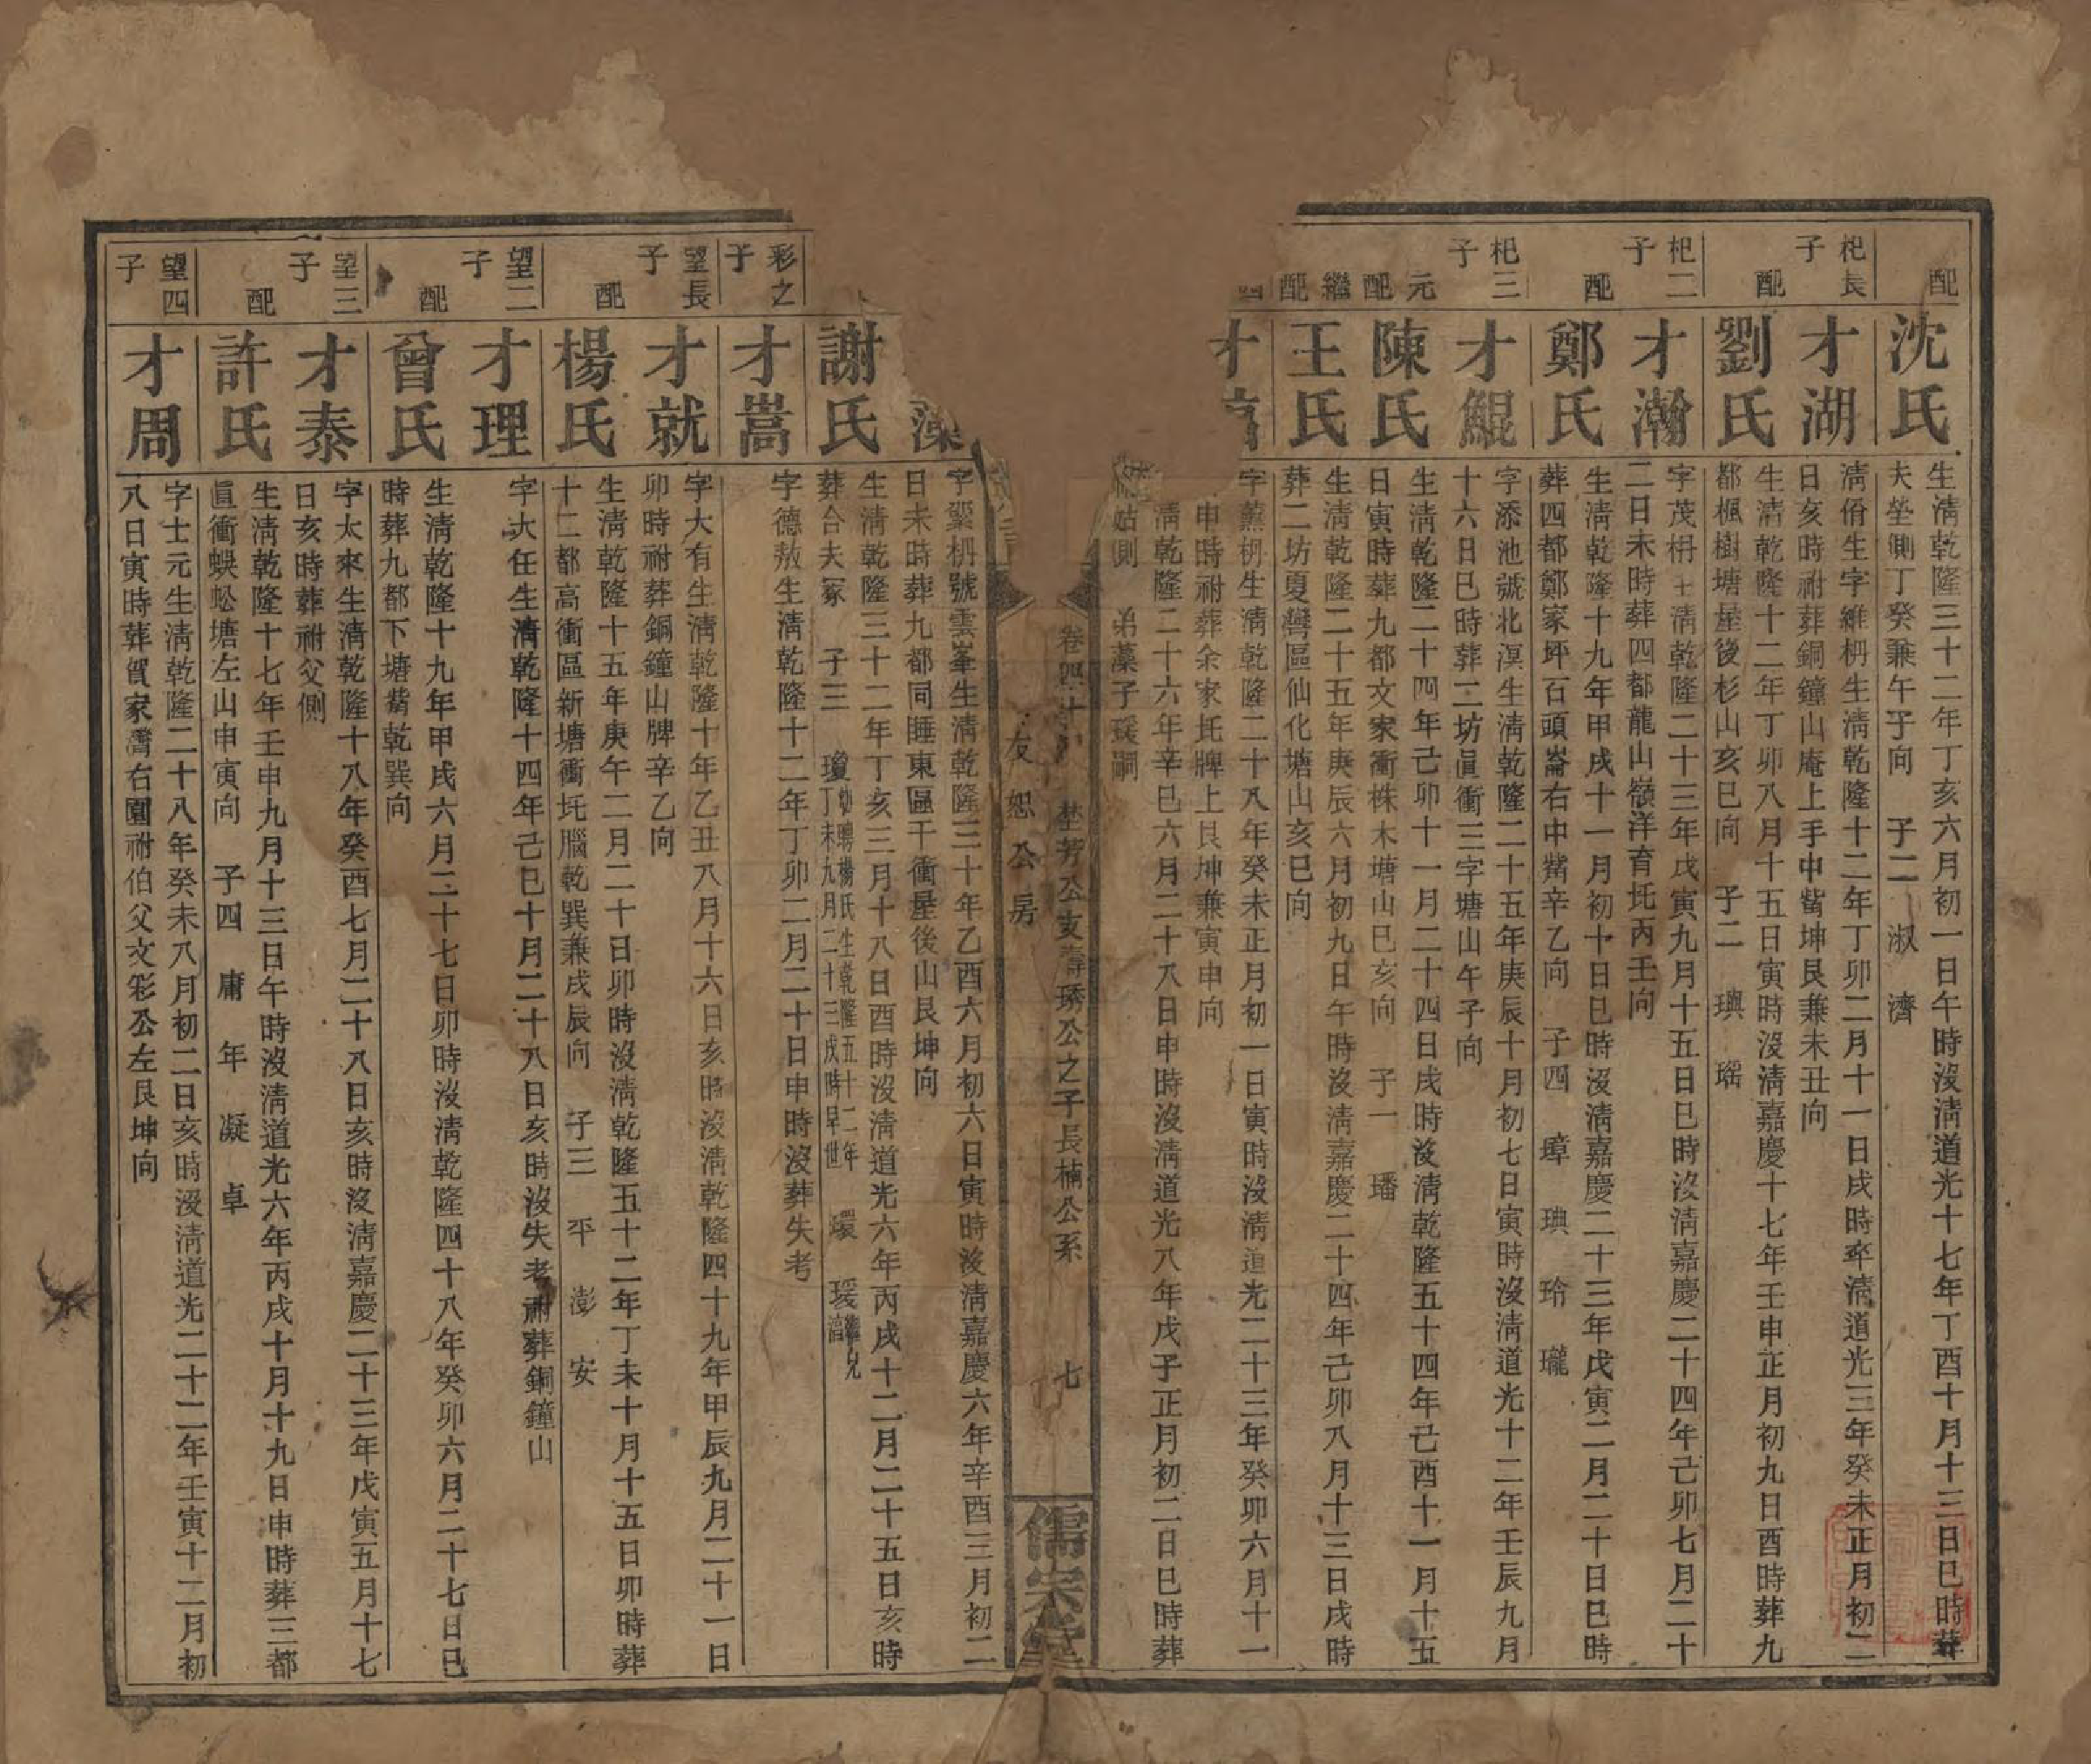 配
沈氏
生淸乾隆三十二年丁亥六月初一日午時沒淸道光十七年丁酉十月十三日巳時葬
夫塋側丁癸兼午子向 子二 淑 濟
杞長子
才湖
淸脩生字維枬生淸乾隆十二年丁卯二月十一日戌時卒淸道光三年癸未正月初二
日亥時祔葬銅鐘山庵上手中觜坤艮兼未丑向
配
劉氏
生淸乾隆十二年丁卯八月十五日寅時沒淸嘉慶十七年壬申正月初九日酉時葬九
都楓樹塘屋後杉山亥巳向 子二 璵 瑤
杞二子
才瀚
字茂枬生淸乾隆二十三年戊寅九月十五日巳時沒淸嘉慶二十四年己卯七月二十
二日未時葬四都龍山嶺洋育坉丙壬向
配
鄭氏
生淸乾隆十九年甲戌十一月初十日巳時沒淸嘉慶二十三年戊寅二月二十日巳時
葬四都鄭家坪石頭崙右中觜辛乙向 子四 璋 璵 玲 瓏
杞三子
才鯤
字添池號北溟生淸乾隆二十五年庚辰十月初七日寅時沒淸道光十二年壬辰九月
十六日巳時葬二坊眞衝三字塘山午子向
元配
陳氏
生淸乾隆二十四年己卯十一月二十四日戌時沒淸乾隆五十四年己酉十一月十五
日寅時葬九都文家衝株木塘山巳亥向 子一 璠
繼配
王氏
生淸乾隆二十五年庚辰六月初九日午時沒淸嘉慶二十四年己卯八月十三日戌時
葬二坊夏灣區仙化塘山亥巳向
四
才
字薰枬生淸乾隆二十八年癸未正月初一日寅時沒淸道光二十三年癸卯六月十一
申時祔葬余家坉牌上艮坤兼寅申向
淸乾隆二十六年辛巳六月二十八日申時沒淸道光八年戊子正月初二日巳時葬
姑側 弟藁子瑗嗣
卷四十六 埜芳公支壽琇公之子長楠公系 七
友恕公房
儒宗堂
藻
字聚枬號雲峯生淸乾隆三十年乙酉六月初六日寅時沒淸嘉慶六年辛酉三月初二
日未時葬九都同睡東區干衝屋後山艮坤向
謝氏
生淸乾隆三十二年丁亥三月十八日酉時沒淸道光六年丙戌十二月二十五日亥時
葬合夫冢 子三 瓊 幼聘楊氏生乾隆五十二年丁未九月二十三戌時早世 環 瑗
彩之子
才嵩
字德敖生淸乾隆十二年丁卯二月二十日申時沒葬失考
望長子
才就
字大有生淸乾隆十年乙丑八月十六日亥時沒淸乾隆四十九年甲辰九月二十一日
卯時祔葬銅鐘山牌辛乙向
配
楊氏
生淸乾隆十五年庚午二月二十日卯時沒淸乾隆五十二年丁未十月十五日卯時葬
十二都高衝區新塘衝坉腦乾巽兼戌辰向 子三 平 澎 安
望二子
才理
字大任生淸乾隆十四年己巳十月二十八日亥時沒失考祔葬銅鐘山
配
曾氏
生淸乾隆十九年甲戌六月二十七日卯時沒淸乾隆四十八年癸卯六月二十七日巳
時葬九都下塘觜乾巽向
望三子
才泰
字太來生淸乾隆十八年癸酉七月二十八日亥時沒淸嘉慶二十三年戊寅五月十七
日亥時葬祔父側
配
許氏
生淸乾隆十七年壬申九月十三日午時沒淸道光六年丙戌十月十九日申時葬三都
眞衝蜈蚣塘左山申寅向 子四 庸 年 凝 卓
望四子
才周
字士元生淸乾隆二十八年癸未八月初二日亥時沒淸道光二十二年壬寅十二月初
八日寅時葬賀家灣右園祔伯父文彩公左艮坤向